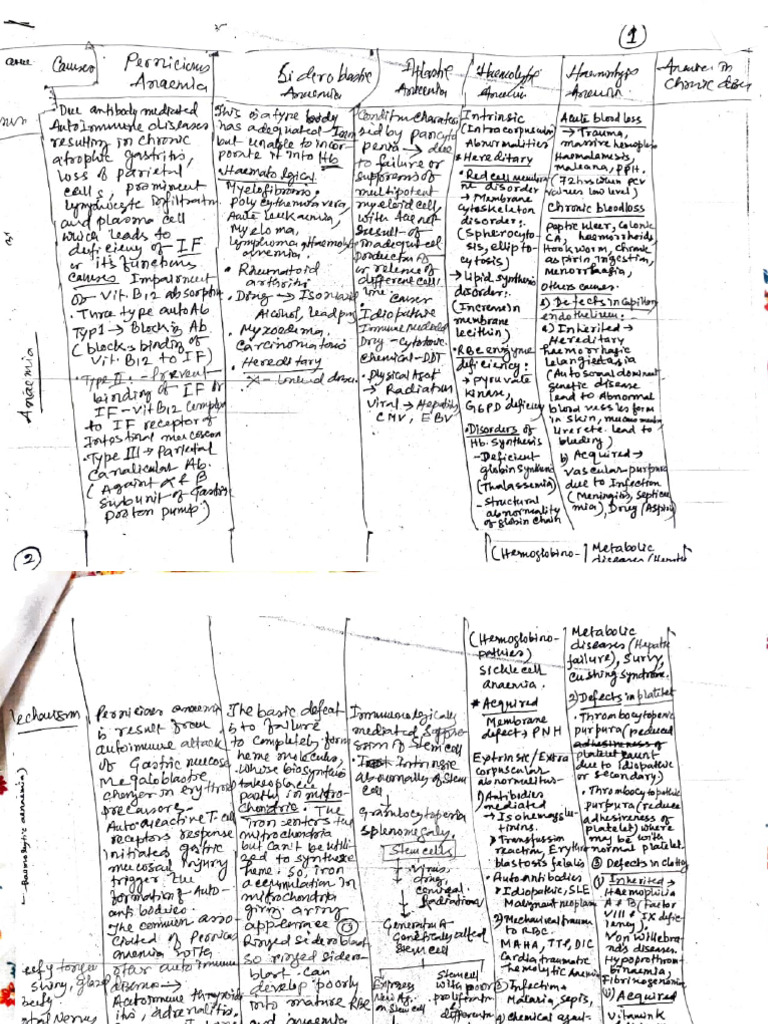 ①
Causes
Pernicious
Anaemia
Sideroblastic
Anaemia
Aplastic
Anaemia
Haemolytic
Anaemia
Haemorrhagic
Anaemia in
Chronic
Anaemia
Due antibody mediated
AutoImmune diseases
resulting in chronic
atrophic gastritis,
loss of parietal
cells, prominent
lymphocytic infiltratn
and plasma cell
which leads to
deficiency of IF
or its functions
causes Impairment
of Vit. B12 absorptn
• Three type autoAb
Typ1 → Blocking Ab.
(blocks binding of
Vit. B12 to IF)
• Type II. - Prevent
binding of IF or
IF-Vit B12 complex
to IF receptor of
Intestinal
• Type III → Parietal
Canalicular Ab.
(Against α & β
Subunit of Gastric
Proton pump)
This is a type
has adequated Iron
but unable to incor-
porate it into Hb
• Haematological
Myelofibrosis,
Polycythemia vera,
Acute leukaemia,
Myeloma,
lymphoma
anemia.
• Rheumatoid
arthritis
• Drug → Isoniazid
Alcohol, lead
• Myxoedema.
Carcinomatosis
• Hereditary
X-linked
Condition characteri
sed by pancyto
penia → due
to failure or
suppression of
multipotent
myeloid cell,
with
result of
inadequate
production
or release of
different cell
line.
cause
• Idiopathic
Immune mediated
Drug - Cytotoxic
chemical - DDT
• Physical Agent
→ Radiation
Viral → Hepatitis
CMV, EBV
Intrinsic
(Intracorpuscular
Abnormalities
* Hereditary
• Red cell membra
ne disorder
→ Membrane
cytoskeleton
disorder:
(Spherocyto-
sis, ellipto-
cytosis)
→ Lipid synthesis
disorder:
(Increase in
membrane
lecithin)
• RBC enzyme
deficiency:
→ pyruvate
kinase,
G6PD deficiency
• Disorders of
Hb. Synthesis
- Deficient
globin synthesis
(Thalassemia)
- Structural
abnormality
of globin chain
Acute blood loss
→ Trauma,
massive hemoptysis
Haematemesis,
malaena, PPH.
(72 hrs
low level)
Chronic blood loss
peptic ulcer, Colonic
CA, haemorrhoids,
Hookworm, chronic
aspirin ingestion,
menorrhagia,
others causes.
1) Defects in Capillary
endothelium:
a) Inherited →
Hereditary
haemorrhagic
telangiectasia
(Autosomal dominant
genetic disease
lead to Abnormal
blood vessels form
in skin,
lead to
bleeding)
b) Acquired →
vascular purpura
due to Infection
(Meningitis, Septice
mia), Drug (Aspirin
②
(Hemoglobino-
Metabolic
(Hemoglobino-
pathies)
Sickle cell
anaemia.
* Acquired
Membrane
defect → PNH
Extrinsic/Extra
corpuscular
abnormalities-
1) Antibodies
mediated
→ Isohemagglu-
tinins.
* Transfusion
reaction, Eryth
blastosis fetalis
• Auto antibodies
* Idiopathic, SLE
Malignant neoplasm
2) Mechanical trauma
to RBC.
MAHA, TTP, DIC
Cardiac traumatic
Hemolytic Anemia
③ Infection →
Malaria, sepsis,
4) chemical agent-
Metabolic
diseases (Hepatic
failure), Survy,
cushing syndrome.
2) Defects in platelet
• Thrombocytopenic
purpura (reduced
platelet count
due to idiopathic
or secondary)
• Thrombocytopathic
purpura (reduce
adhesiveness of
platelet) where
may be with
normal platelet.
③ Defects in clotting
(i) Inherited →
Haemophilia
A & B (Factor
VIII & IX defic-
iency),
Von Willebra-
nds disease,
Hypoprothrom-
binaemia,
Fibrinogenemia
(ii) Acquired
vitamin K
Mechanism
Pernicious anaemia
is result from
autoimmune attack
of Gastric mucosa
Megaloblastic
changes in erythroid
precursors-
Autoreactive T-cell
receptors response
initiates gastric
mucosal injury
trigger the
formation of Auto-
antibodies.
The common asso
ciated of Pernicious
anemia with
other autoimmune
disease →
Autoimmune thyroid
itis, adrenalitis,
The basic defect
is to failure
to completely form
heme molecules,
whose biosynthesis
takes place
partly in mito-
chondria. The
iron enters the
mitochondria
but can't be utili-
zed to synthesize
heme. So, iron
accumulation in
mitochondria
giving a ring
appearance
Ringed sideroblast
so ringed sidero-
blast can
develop poorly
into mature RBC
and anaemia
Immunologically
mediated suppre-
ssion of Stem cell
Intrinsic
abnormally of Stem
cell.
Granulocytopenia
splenomegaly.
Stem cells
↓ virus,
drug,
chemical
Radiation
Generation
Genetically altered
stem cell
Express
New Ag.
on stem cell
Stem cell
with poor
proliferation
differentn
beefy tongue
shiny, glazed
beefy.